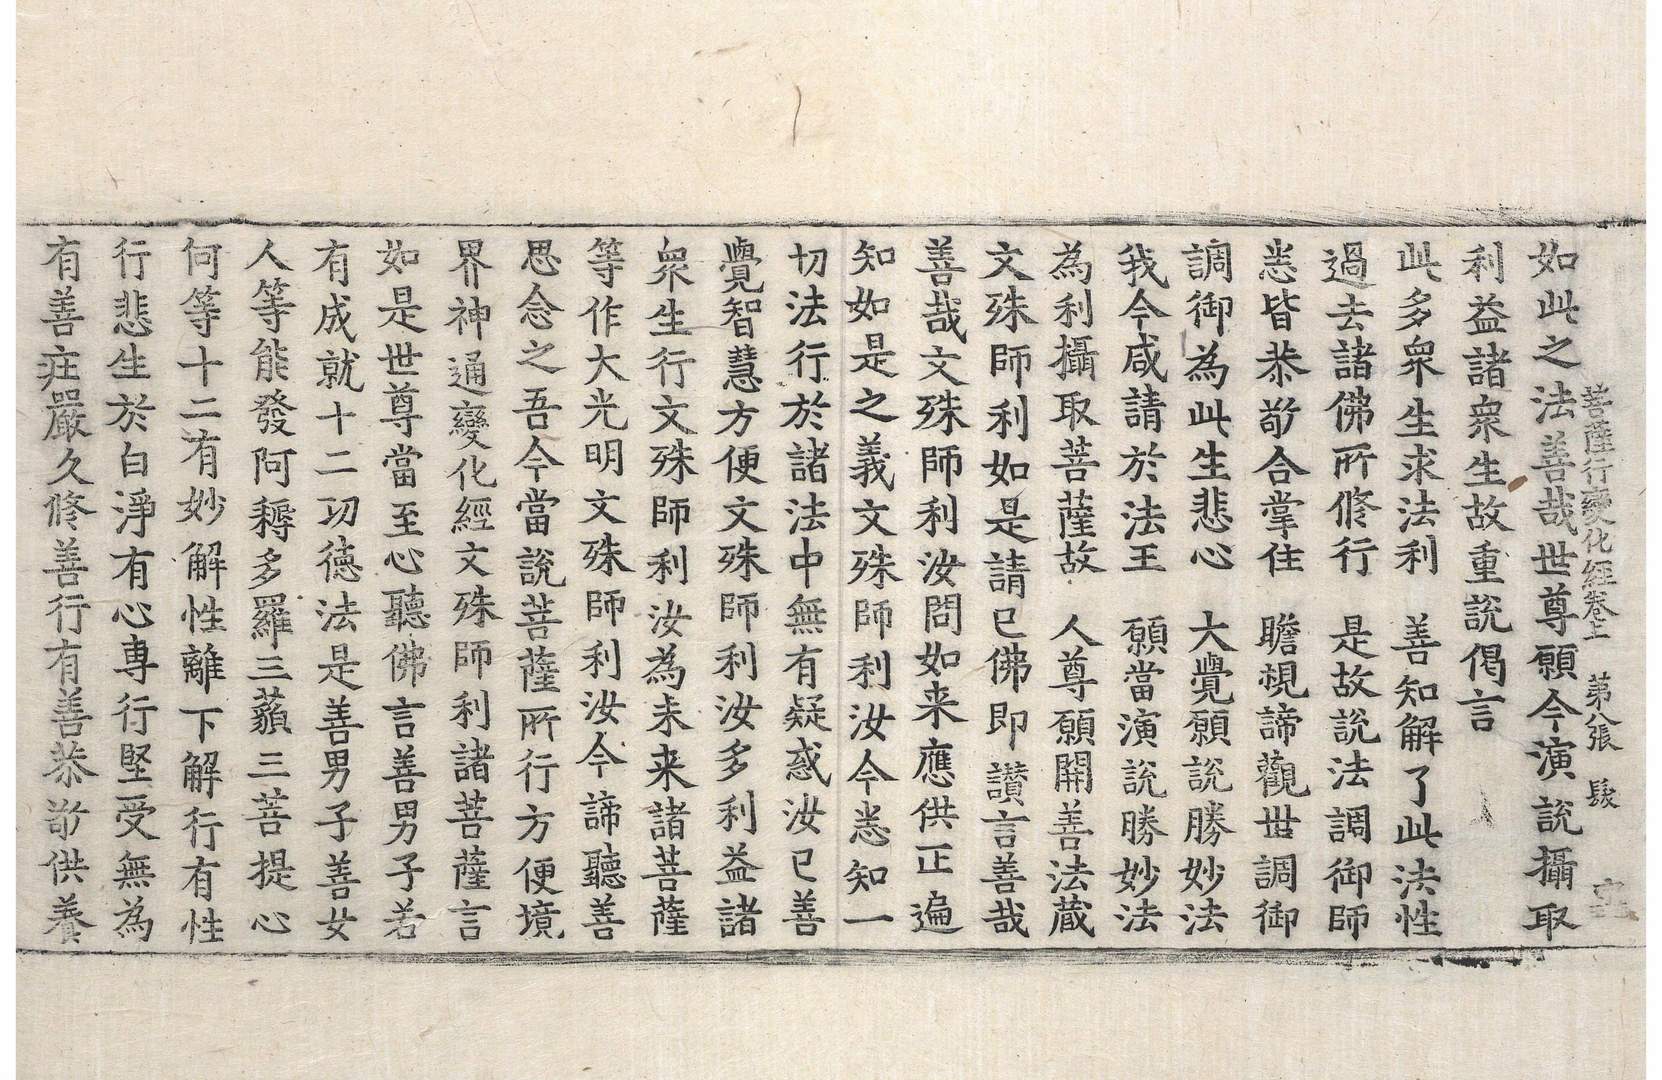 菩薩行變化經卷上　第八張　髮
如此之法善哉世尊願今演說攝取
利益諸衆生故重說偈言
此多衆生求法利　善知解了此法性
過去諸佛所修行　是故說法調御師
悉皆恭敬合掌住　瞻視諦觀世調御
調御為此生悲心　大覺願說勝妙法
我今咸請於法王　願當演說勝妙法
為利攝取菩薩故　人尊願開善法藏
文殊師利如是請已佛即讃言善哉
善哉文殊師利汝問如来應供正遍
知如是之義文殊師利汝今悉知一
切法行於諸法中無有疑惑汝已善
覺智慧方便文殊師利汝多利益諸
衆生行文殊師利汝為未来諸菩薩
等作大光明文殊師利汝今諦聽善
思念之吾今當說菩薩所行方便境
界神通變化經文殊師利諸菩薩言
如是世尊當至心聽佛言善男子若
有成就十二功德法是善男子善女
人等能發阿耨多羅三藐三菩提心
何等十二有妙解性離下解行有性
行悲生於白淨有心專行堅受無為
有善莊嚴久修善行有善恭敬供養